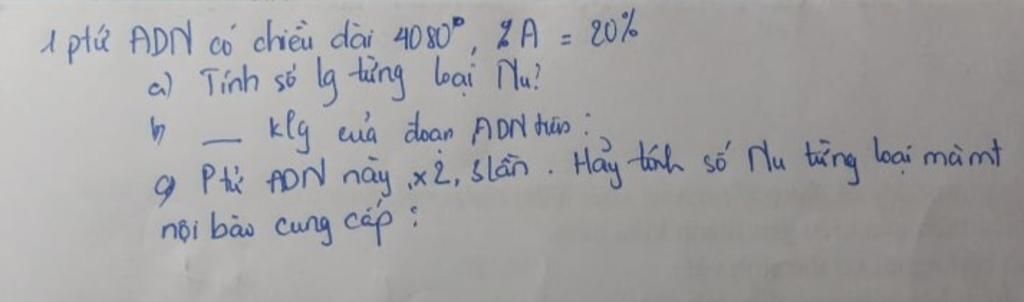 1 ptử ADN có chiều dài 4080°, %A = 20%
a) Tính số lg từng loại Nu?
b) __ klg của đoạn ADN trên:
c) Ptử ADN này x2, 3 lần. Hãy tính số Nu từng loại mà mt
nội bào cung cấp: